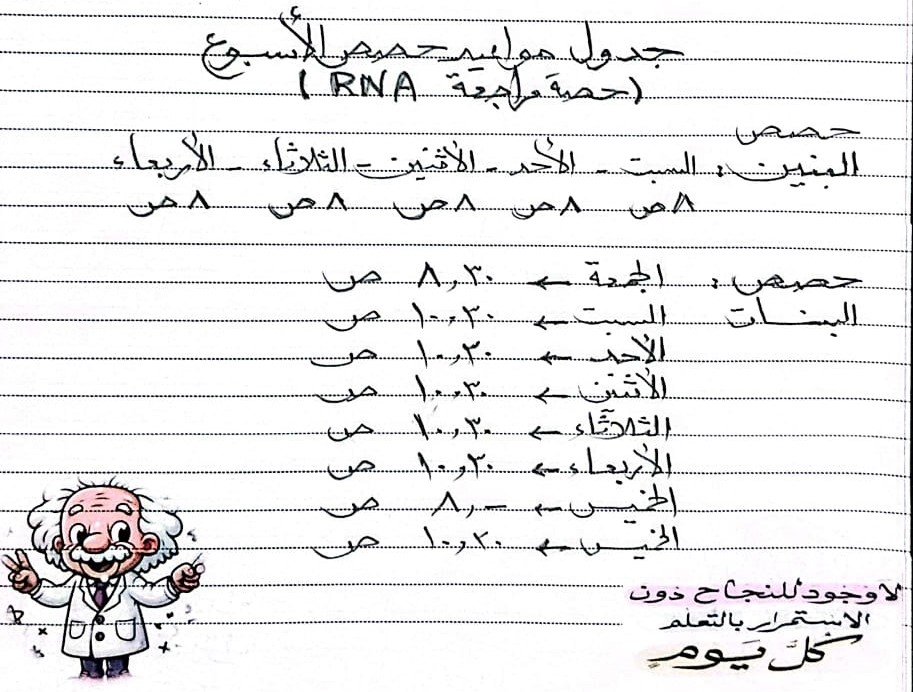 جدول مواعيد حصص الأسبوع
(حصة مراجعة RNA)
حصص
البنين : السبت - الأحد - الأثنين - الثلاثاء - الأربعاء
٨ص ٨ص ٨ص ٨ص ٨ص
حصص : الجمعة ← ٨,٣٠ ص
البنات السبت ← ١٠,٣٠ ص
الأحد ← ١٠,٣٠ ص
الأثنين ← ١٠,٣٠ ص
الثلاثاء ← ١٠,٣٠ ص
الأربعاء ← ١٠,٣٠ ص
الخميس ← ٨,- ص
الخميس ← ١٠,٣٠ ص
لا وجود للنجاح دون
الاستمرار بالتعلم
كلَّ يَوم